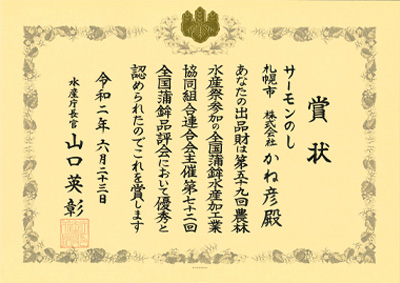 賞状
サーモンのし
札幌市 株式会社 かね彦 殿
あなたの出品財は第五十九回農林
水産祭参加の全国蒲鉾水産加工業
協同組合連合会主催第七十二回
全国蒲鉾品評会において優秀と
認められたのでこれを賞します
令和二年六月二十三日
水産庁長官 山口英彰